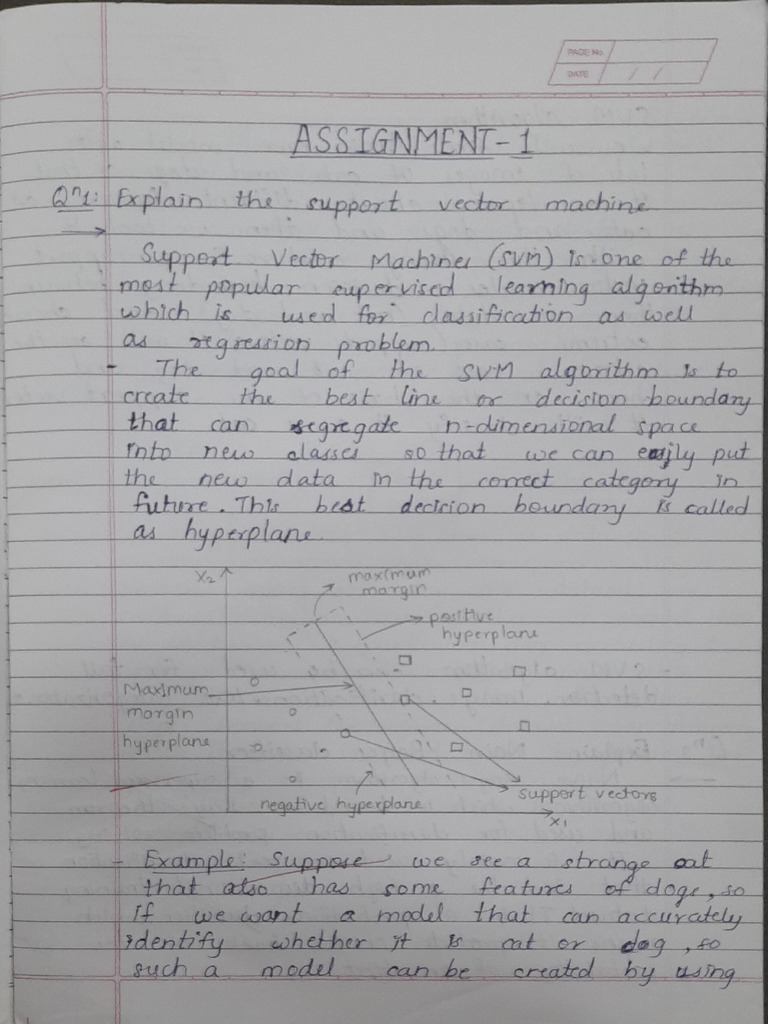 PAGE No.
DATE / /
ASSIGNMENT-1
Qⁿ1: Explain the support vector machine
→
Support Vector Machines (SVM) is one of the
most popular supervised learning algorithm
which is used for classification as well
as regression problem.
- The goal of the SVM algorithm is to
create the best line or decision boundary
that can segregate n-dimensional space
into new classes so that we can easily put
the new data in the correct category in
future. This best decision boundary is called
as hyperplane.
X₂
maximum
margin
positive
hyperplane
Maximum
margin
hyperplane
negative hyperplane
support vectors
X₁
- Example: Suppose we see a strange cat
that also has some features of dogs, so
if we want a model that can accurately
identify whether it is cat or dog, so
such a model can be created by using